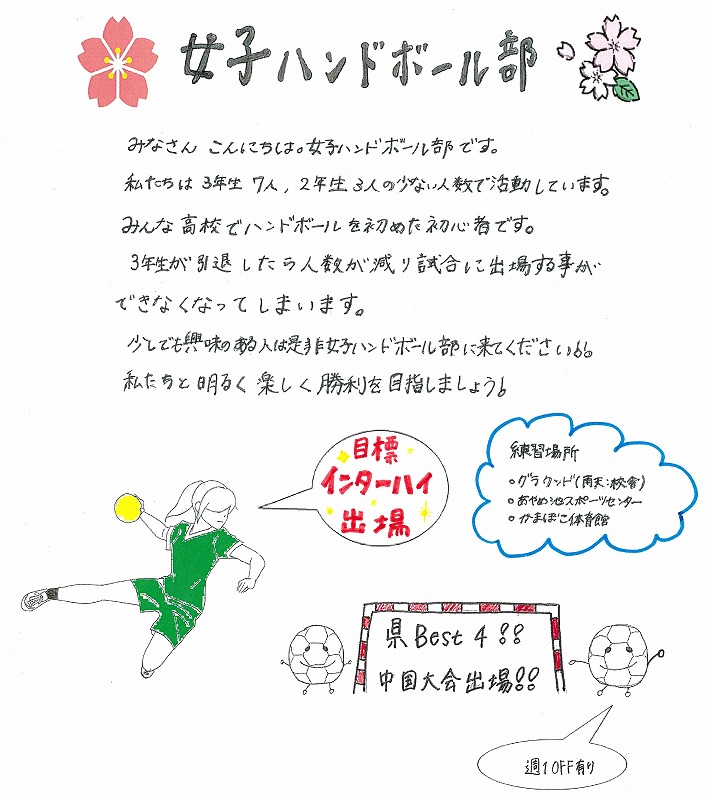 女子ハンドボール部
みなさん こんにちは。女子ハンドボール部です。
私たちは 3年生 7人, 2年生 3人の少ない人数で活動しています。
みんな高校でハンドボールを初めた初心者です。
3年生が引退したら人数が減り試合に出場する事が
できなくなってしまいます。
少しでも興味のある人は是非女子ハンドボール部に来てください!!
私たちと明るく楽しく勝利を目指しましょう!
目標
インターハイ
出場
練習場所
○グラウンド(雨天:校舎)
○あやめ池スポーツセンター
○かまぼこ体育館
県Best 4!!
中国大会出場!!
週1OFF有り